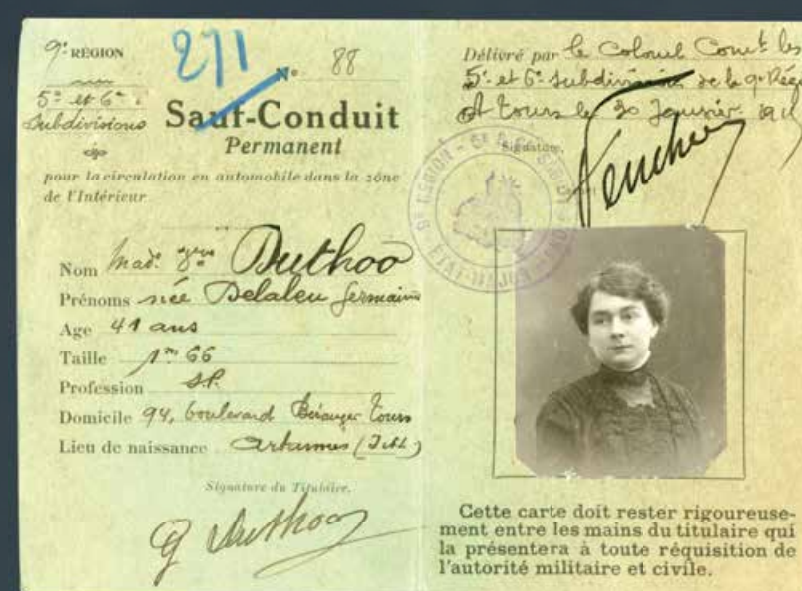 9e RÉGION
271
No 88
5e et 6e
Subdivisions
Sauf-Conduit
Permanent
pour la circulation en automobile dans la zône
de l'Intérieur
Nom Made Vve Duthoo
Prénoms née Delaleu Germaine
Age 41 ans
Taille 1m 66
Profession SP.
Domicile 94, boulevard Béranger Tours
Lieu de naissance Artannes (I&L)
Signature du Titulaire.
G Duthoo
Délivré par le Colonel Comt les
5e et 6e Subdivisions de la 9e Région
A Tours le 30 Janvier 191
Signature,
9e RÉGION
ETAT-MAJOR
Cette carte doit rester rigoureuse-
ment entre les mains du titulaire qui
la présentera à toute réquisition de
l'autorité militaire et civile.